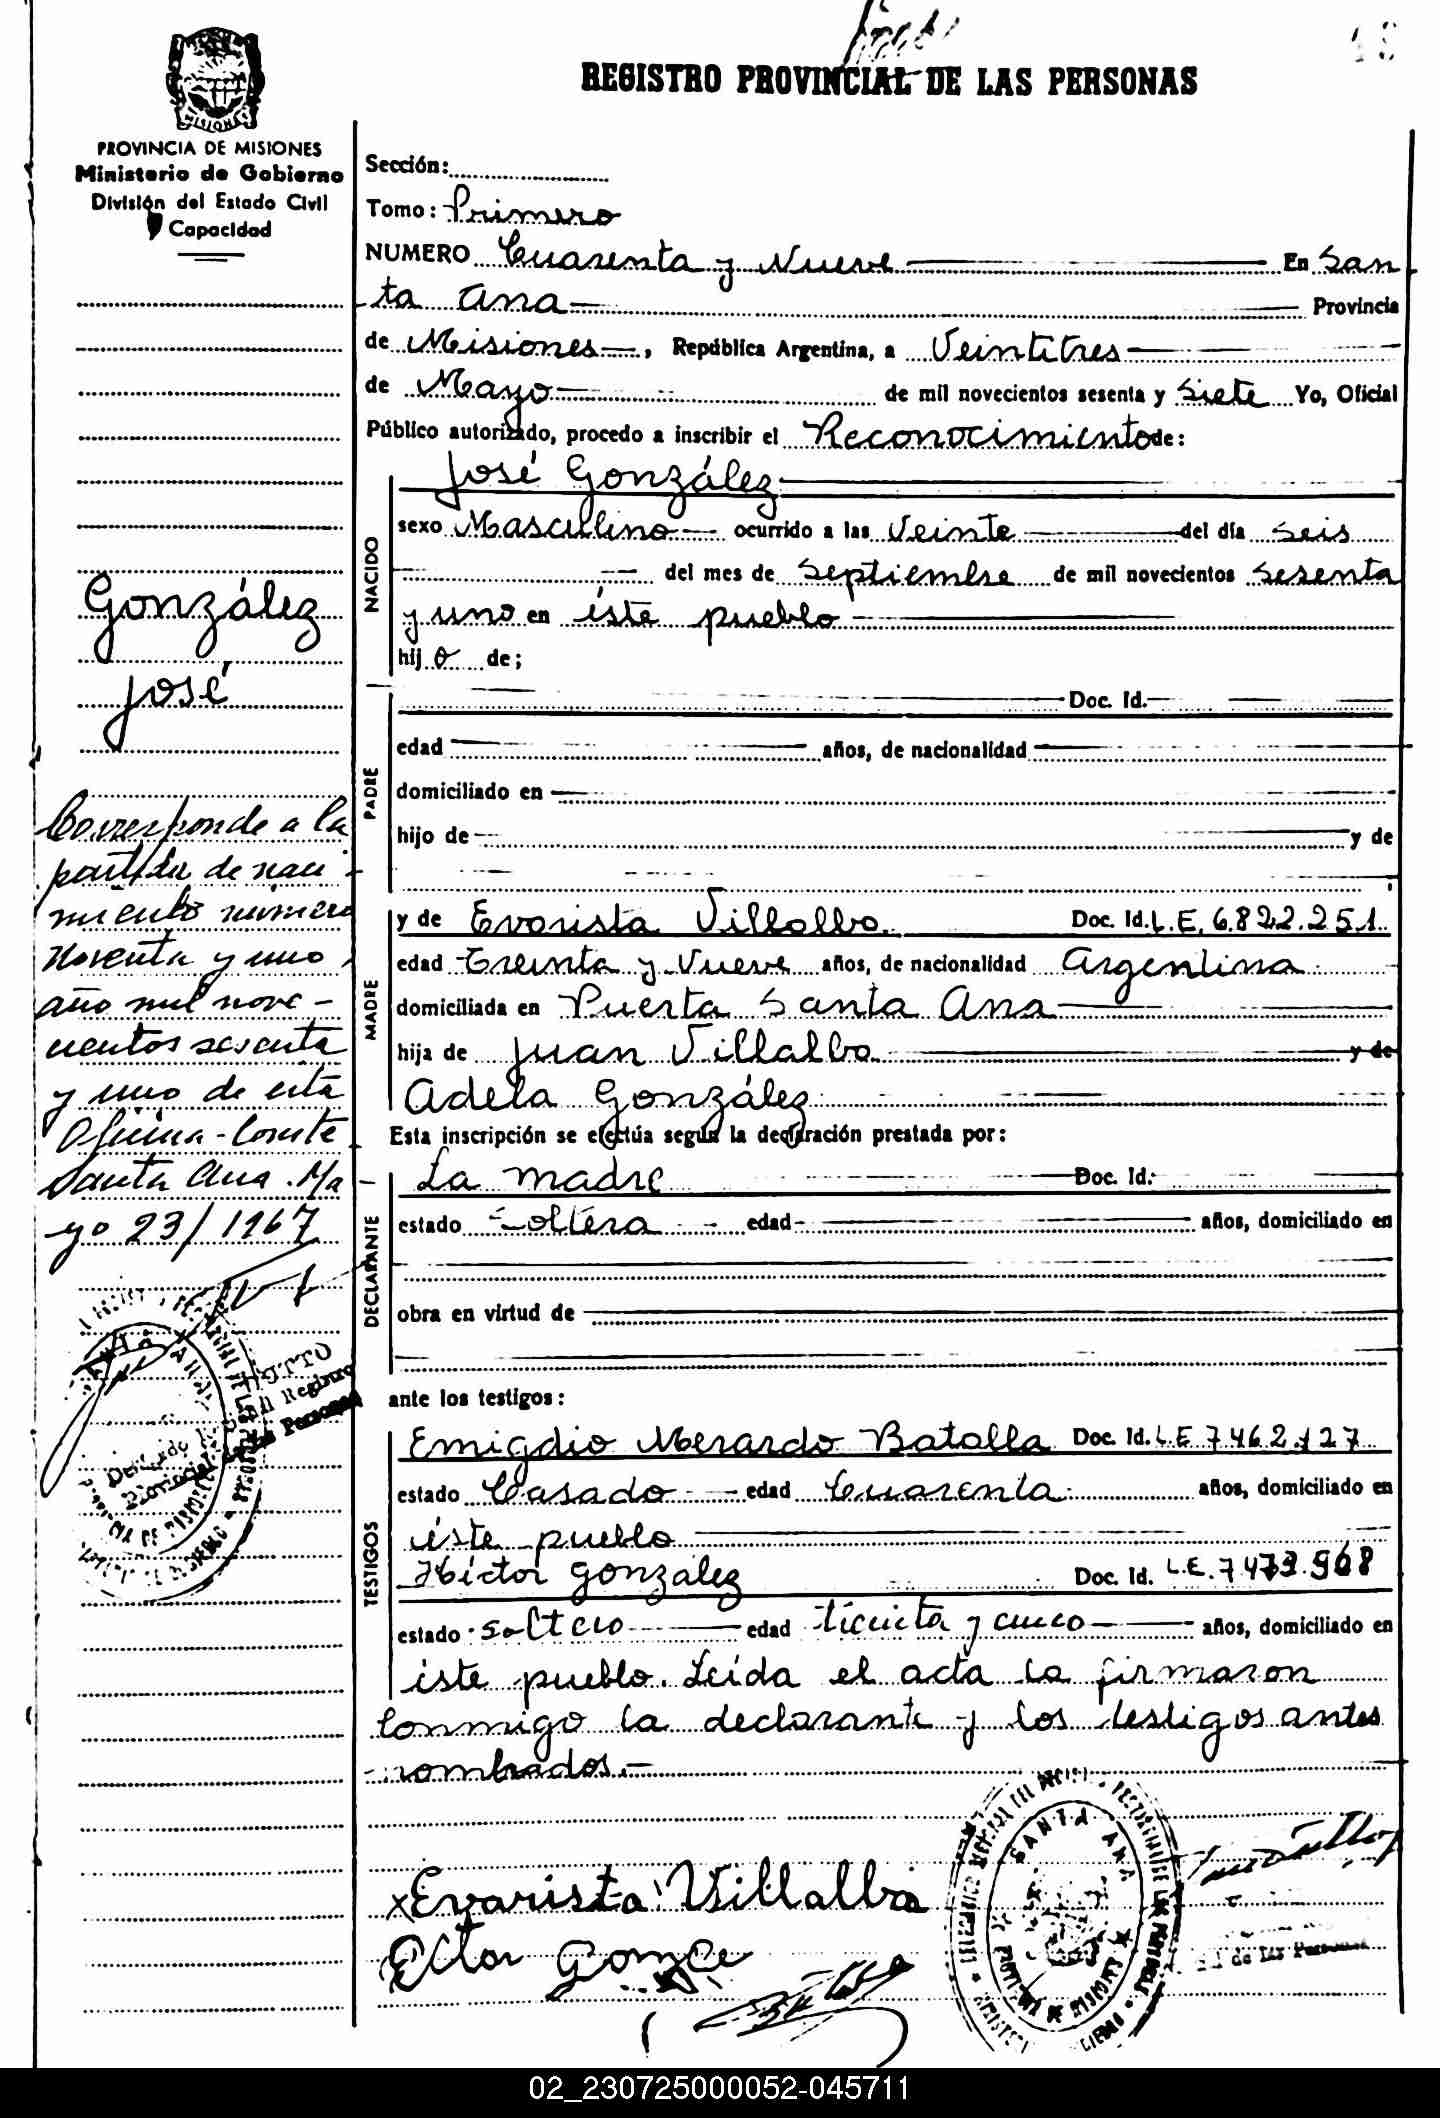 REGISTRO PROVINCIAL DE LAS PERSONAS
MISIONES
PROVINCIA DE MISIONES
Ministerio de Gobierno
División del Estado Civil
y Capacidad
Sección:
Tomo: Primero
NUMERO Cuarenta y Nueve En San
ta Ana Provincia
de Misiones, República Argentina, a Veintitres
de Mayo de mil novecientos sesenta y Siete Yo, Oficial
Público autorizado, procedo a inscribir el Reconocimiento de:
González
José
Corresponde a la
partida de naci
miento número
Noventa y uno
año mil nove-
cientos sesenta
y uno de esta
Oficina - Conste
Santa Ana. Ma
yo 23/1967
NACIDO
José González
sexo Masculino ocurrido a las Veinte del día seis
del mes de septiembre de mil novecientos sesenta
y uno en éste pueblo
hijo de;
PADRE
Doc. Id.
edad años, de nacionalidad
domiciliado en
hijo de y de
MADRE
y de Evarista Villalba Doc. Id. L.E. 6.822.251
edad Treinta y Nueve años, de nacionalidad Argentina
domiciliada en Puerto Santa Ana
hija de Juan Villalba y de
Adela González
Esta inscripción se efectúa según la declaración prestada por:
DECLARANTE
La madre Doc. Id.
estado Soltera edad años, domiciliado en
obra en virtud de
ante los testigos:
TESTIGOS
Emigdio Merardo Batalla Doc. Id. L.E 7462.127
estado Casado edad Cuarenta años, domiciliado en
éste pueblo
Héctor González Doc. Id. L.E. 7.473.968
estado soltero edad treinta y cinco años, domiciliado en
éste pueblo. Leída el acta la firmaron
conmigo la declarante y los testigos antes
nombrados.-
x Evarista Villalba
Ector
SANTA ANA
PROVINCIA DE MISIONES
de las Personas
02_230725000052-045711